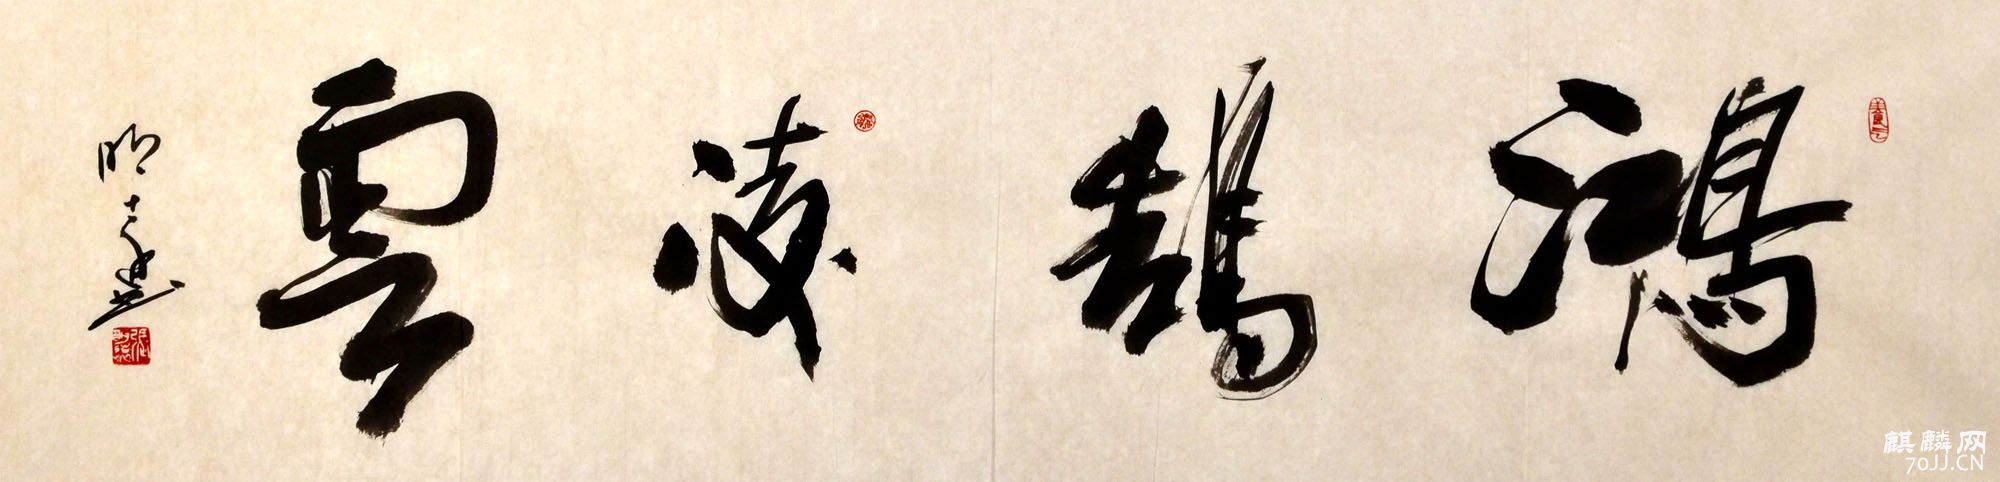 鸿鹄凌雲
明远
麒麟网
70JJ.CN